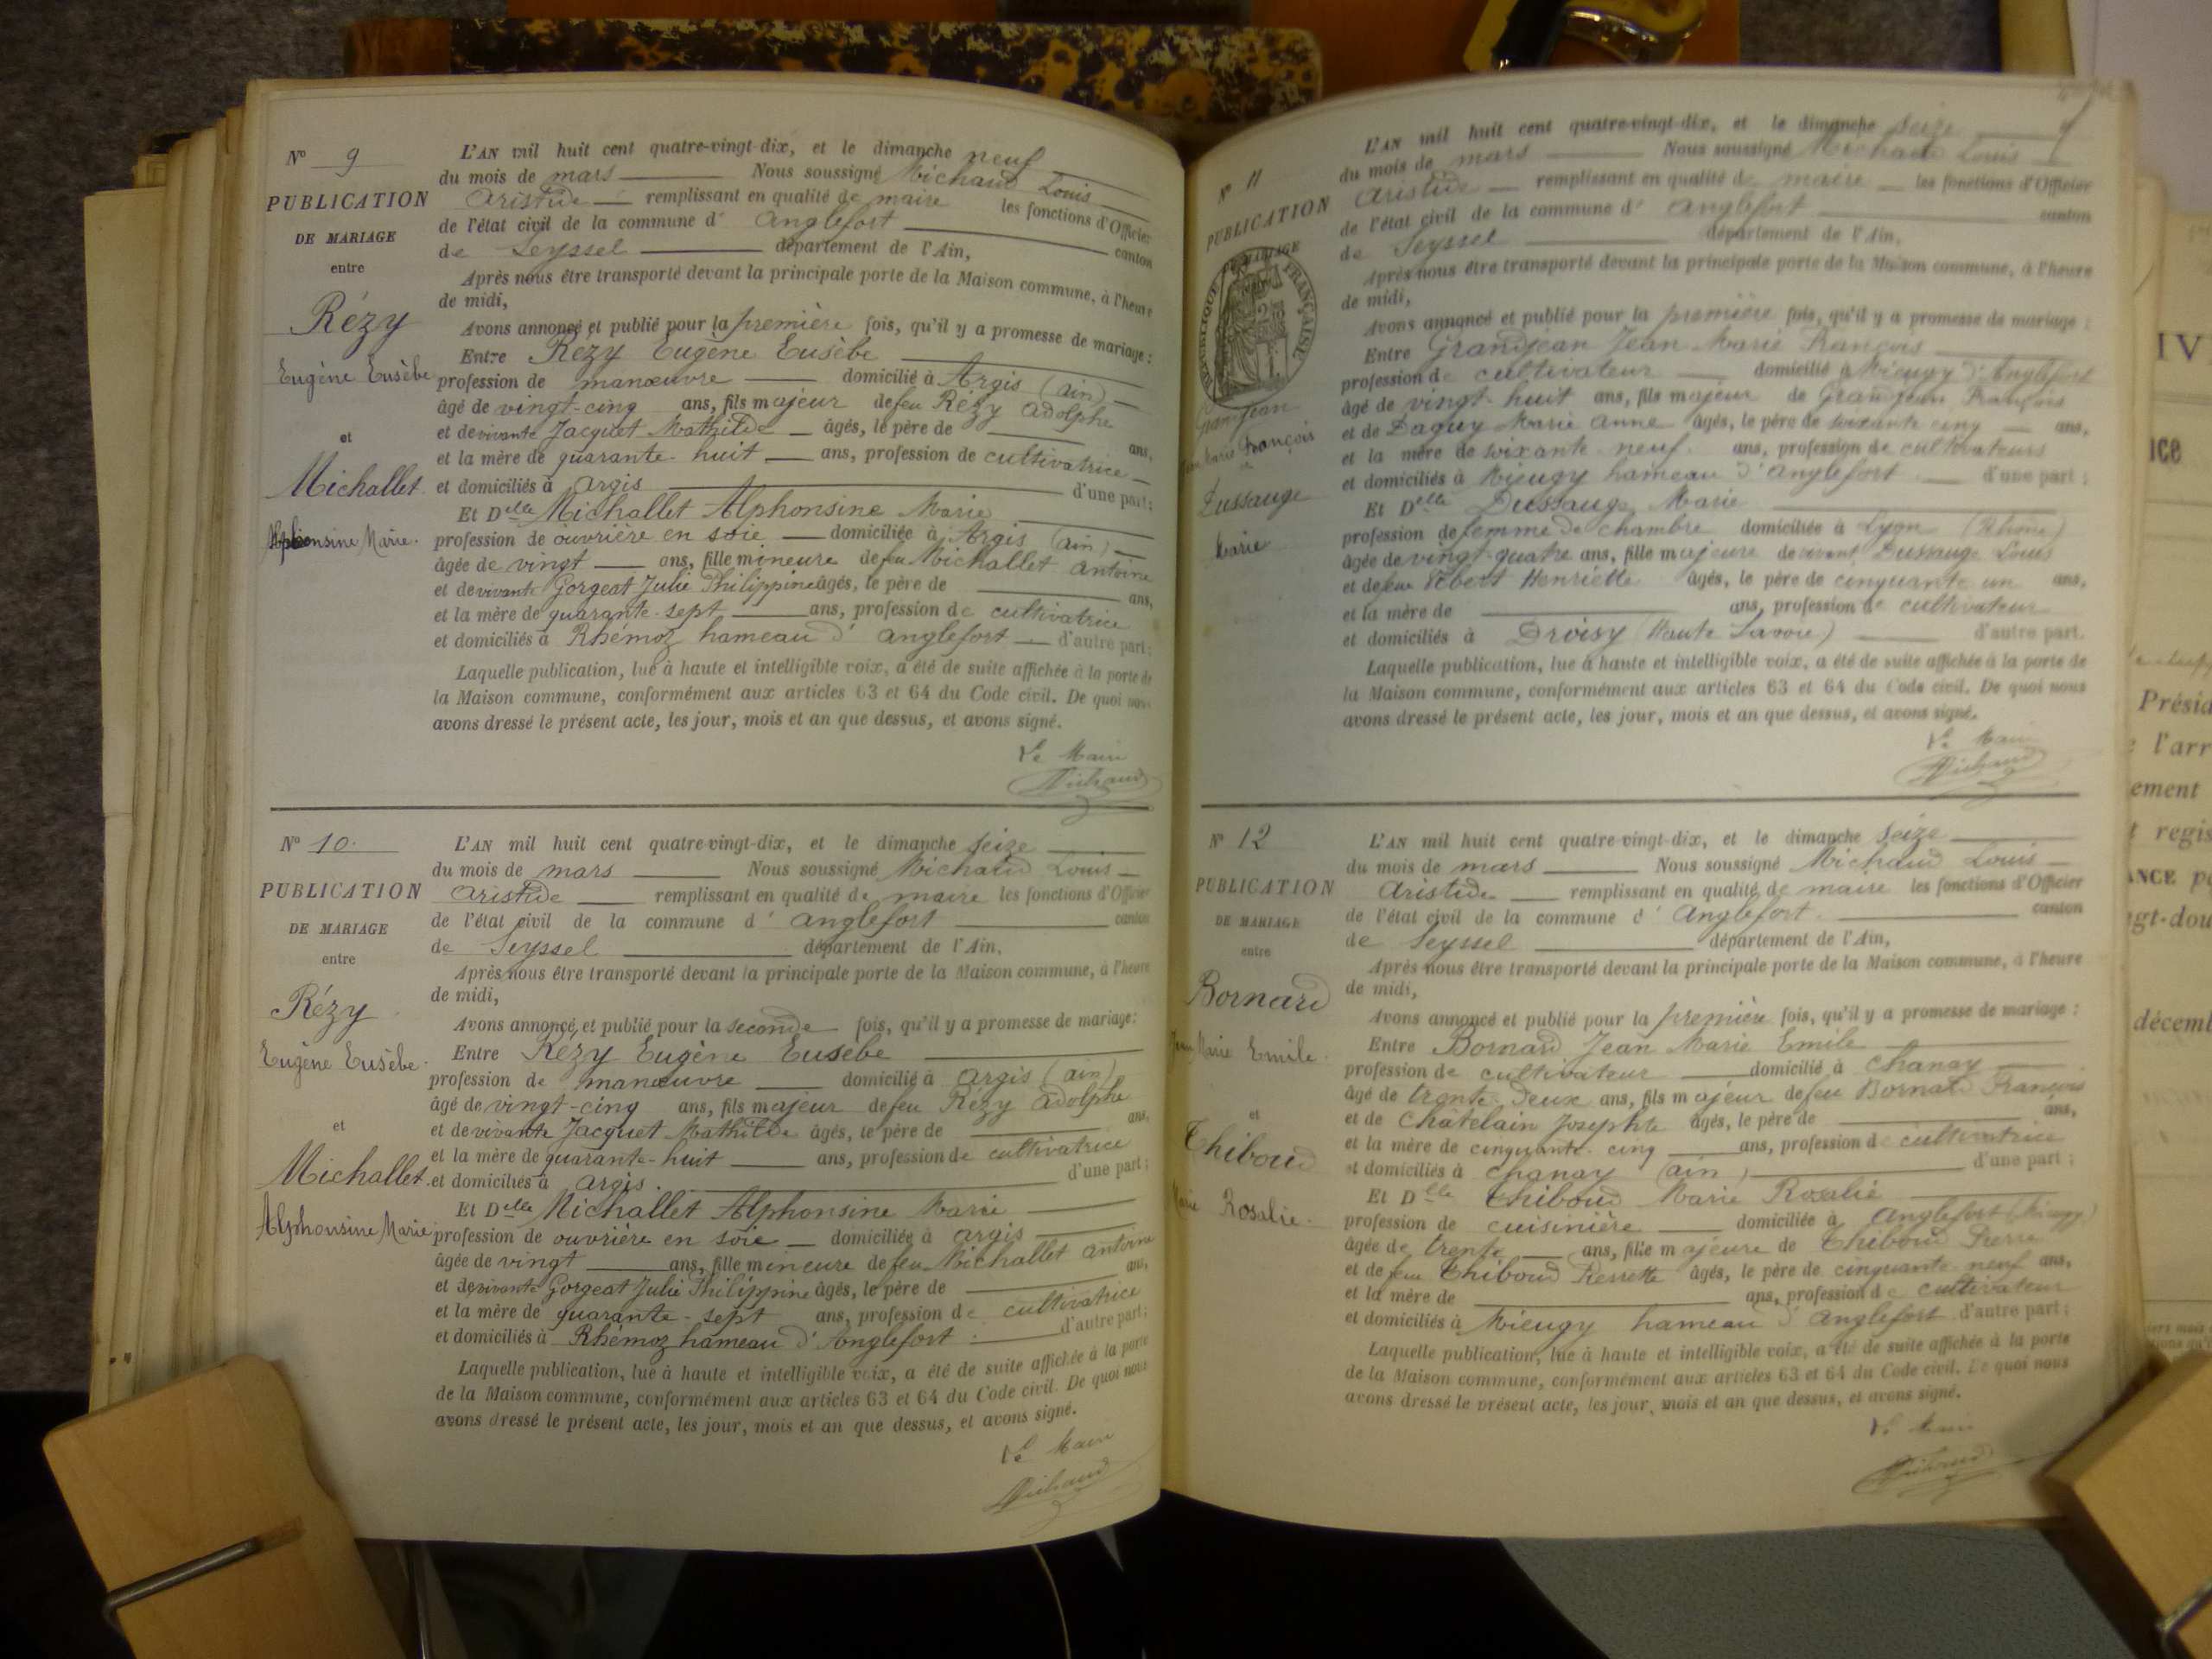 N° 9
PUBLICATION
DE MARIAGE
entre
Rézy
Eugène Eusèbe
et
Michallet
Alphonsine Marie.
L'AN mil huit cent quatre-vingt-dix, et le dimanche neuf
du mois de mars Nous soussigné Michaud Louis
Aristide remplissant en qualité de maire les fonctions d'Officier
de l'état civil de la commune d' Anglefort canton
de Seyssel département de l'Ain,
Après nous être transporté devant la principale porte de la Maison commune, à l'heure
de midi,
Avons annoncé et publié pour la première fois, qu'il y a promesse de mariage :
Entre Rézy Eugène Eusèbe
profession de manœuvre domicilié à Argis (Ain)
âgé de vingt-cinq ans, fils majeur de feu Rézy Adolphe
et de vivante Jacquet Mathilde âgés, le père de ans,
et la mère de quarante-huit ans, profession de cultivatrice
et domiciliés à Argis d'une part;
Et Delle Michallet Alphonsine Marie
profession de ouvrière en soie domiciliée à Argis (Ain)
âgée de vingt ans, fille mineure de feu Michallet Antoine
et de vivante Gorgeat Julie Philippine âgés, le père de ans,
et la mère de quarante-sept ans, profession de cultivatrice
et domiciliés à Rhémoz hameau d'Anglefort d'autre part;
Laquelle publication, lue à haute et intelligible voix, a été de suite affichée à la porte de
la Maison commune, conformément aux articles 63 et 64 du Code civil. De quoi nous
avons dressé le présent acte, les jour, mois et an que dessus, et avons signé.
Le Maire
Michaud
N° 10.
PUBLICATION
DE MARIAGE
entre
Rézy
Eugène Eusèbe.
et
Michallet.
Alphonsine Marie
L'AN mil huit cent quatre-vingt-dix, et le dimanche seize
du mois de mars Nous soussigné Michaud Louis
Aristide remplissant en qualité de maire les fonctions d'Officier
de l'état civil de la commune d' Anglefort canton
de Seyssel département de l'Ain,
Après nous être transporté devant la principale porte de la Maison commune, à l'heure
de midi,
Avons annoncé et publié pour la seconde fois, qu'il y a promesse de mariage:
Entre Rézy Eugène Eusèbe
profession de manœuvre domicilié à Argis (Ain)
âgé de vingt-cinq ans, fils majeur de feu Rézy Adolphe
et de vivante Jacquet Mathilde âgés, le père de ans,
et la mère de quarante-huit ans, profession de cultivatrice
et domiciliés à Argis. d'une part;
Et Delle Michallet Alphonsine Marie
profession de ouvrière en soie domiciliée à Argis
âgée de vingt ans, fille mineure de feu Michallet Antoine
et de vivante Gorgeat Julie Philippine âgés, le père de ans,
et la mère de quarante-sept ans, profession de cultivatrice
et domiciliés à Rhémoz hameau d'Anglefort. d'autre part;
Laquelle publication, lue à haute et intelligible voix, a été de suite affichée à la porte
de la Maison commune, conformément aux articles 63 et 64 du Code civil. De quoi nous
avons dressé le présent acte, les jour, mois et an que dessus, et avons signé.
Le Maire
Michaud
N° 11
PUBLICATION
DE MARIAGE
RÉPUBLIQUE FRANÇAISE
Grandjean
Jean Marie François
Dussauge
Marie
L'AN mil huit cent quatre-vingt-dix, et le dimanche seize
du mois de mars Nous soussigné Michaud Louis
Aristide remplissant en qualité de maire les fonctions d'Officier
de l'état civil de la commune d' Anglefort canton
de Seyssel département de l'Ain,
Après nous être transporté devant la principale porte de la Maison commune, à l'heure
de midi,
Avons annoncé et publié pour la première fois, qu'il y a promesse de mariage :
Entre Grandjean Jean Marie François
profession de cultivateur domicilié à Mieugy d'Anglefort
âgé de vingt-huit ans, fils majeur de Grandjean François
et de Daguy Marie Anne âgés, le père de soixante cinq ans,
et la mère de soixante neuf ans, profession de cultivateurs
et domiciliés à Mieugy hameau d'Anglefort d'une part;
Et Delle Dussauge Marie
profession de femme de chambre domiciliée à Lyon (Rhône)
âgée de vingt-quatre ans, fille majeure de vivant Dussauge Louis
et de feue Henriette âgés, le père de cinquante un ans,
et la mère de ans, profession de cultivateur
et domiciliés à Droisy (Haute Savoie) d'autre part.
Laquelle publication, lue à haute et intelligible voix, a été de suite affichée à la porte de
la Maison commune, conformément aux articles 63 et 64 du Code civil. De quoi nous
avons dressé le présent acte, les jour, mois et an que dessus, et avons signé.
Le Maire
Michaud
N° 12
PUBLICATION
DE MARIAGE
entre
Bornard
Jean Marie Emile.
et
Thiboud
Marie Rosalie.
L'AN mil huit cent quatre-vingt-dix, et le dimanche seize
du mois de mars Nous soussigné Michaud Louis
Aristide remplissant en qualité de maire les fonctions d'Officier
de l'état civil de la commune d' Anglefort. canton
de Seyssel département de l'Ain,
Après nous être transporté devant la principale porte de la Maison commune, à l'heure
de midi,
Avons annoncé et publié pour la première fois, qu'il y a promesse de mariage :
Entre Bornard Jean Marie Emile
profession de cultivateur domicilié à Chanay
âgé de trente-deux ans, fils majeur de feu Bornard François
et de Châtelain Josephte âgés, le père de ans,
et la mère de cinquante-cinq ans, profession de cultivatrice
et domiciliés à Chanay (Ain) d'une part;
Et Delle Thiboud Marie Rosalie
profession de cuisinière domiciliée à Anglefort (Mieugy)
âgée de trente ans, fille majeure de Thiboud Pierre
et de feu Thiboud Pierrette âgés, le père de cinquante neuf ans,
et la mère de ans, profession de cultivateur
et domiciliés à Mieugy hameau d'Anglefort d'autre part;
Laquelle publication, lue à haute et intelligible voix, a été de suite affichée à la porte
de la Maison commune, conformément aux articles 63 et 64 du Code civil. De quoi nous
avons dressé le présent acte, les jour, mois et an que dessus, et avons signé.
Le Maire
Michaud
IV
Présid
l'arr
ement
regis
décem